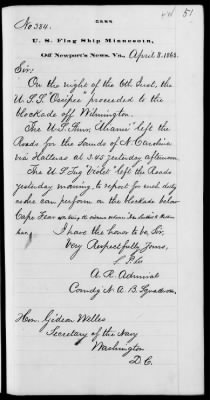 51
No 384.
U. S. Flag Ship Minnesota,
Off Newport's News, Va., April 8. 1863.
Sir:
On the night of the 6th Inst, the
U.S.S. "Ossipee" proceeded to the
blockade off Wilmington.
The U.S. Steamer "Miami" left the
Roads for the Sounds of N. Carolina
via Hatteras at 3.45 yesterday afternoon
The U.S. Tug "Violet" left the Roads
yesterday morning, to report for such duty
as she can perform on the blockade below
Cape Fear
I have the honor to be, Sir,
Very Respectfully Yours,
S P Lee
A. R. Admiral
Comdg N. A. B. Squadron.
Hon. Gideon Welles
Secretary of the Navy
Washington
D.C.